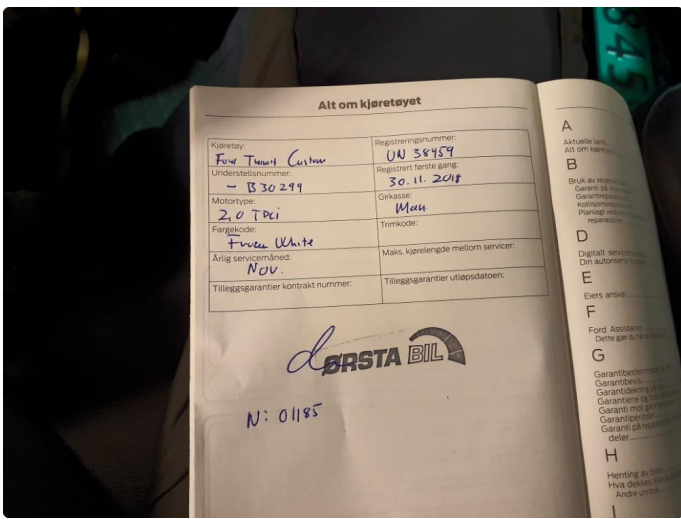 Alt om kjøretøyet
Kjøretøy:
Ford Transit Custom
Registreringsnummer:
UN 38459
Understellsnummer:
- B30299
Registrert første gang:
30.11.2018
Motortype:
2,0 TDCi
Girkasse:
Man
Fargekode:
Frozen White
Trimkode:
Årlig servicemåned:
Nov.
Maks. kjørelengde mellom servicer:
Tilleggsgarantier kontrakt nummer:
Tilleggsgarantier utløpsdatoen:
ØRSTA BIL
N: 01185
A
Aktuelle
Alt om
B
Bruk av
Garanti på
Planlagt
D
Digitalt
Din
E
Eiers ansvar
F
Ford Assistance
Dette gjør du
G
Garantibevis
Garantidekning
Garantiene og
Garanti mot
Garantiperiode
Garanti på
deler
H
Henting av
Hva dekkes
Andre
I
845